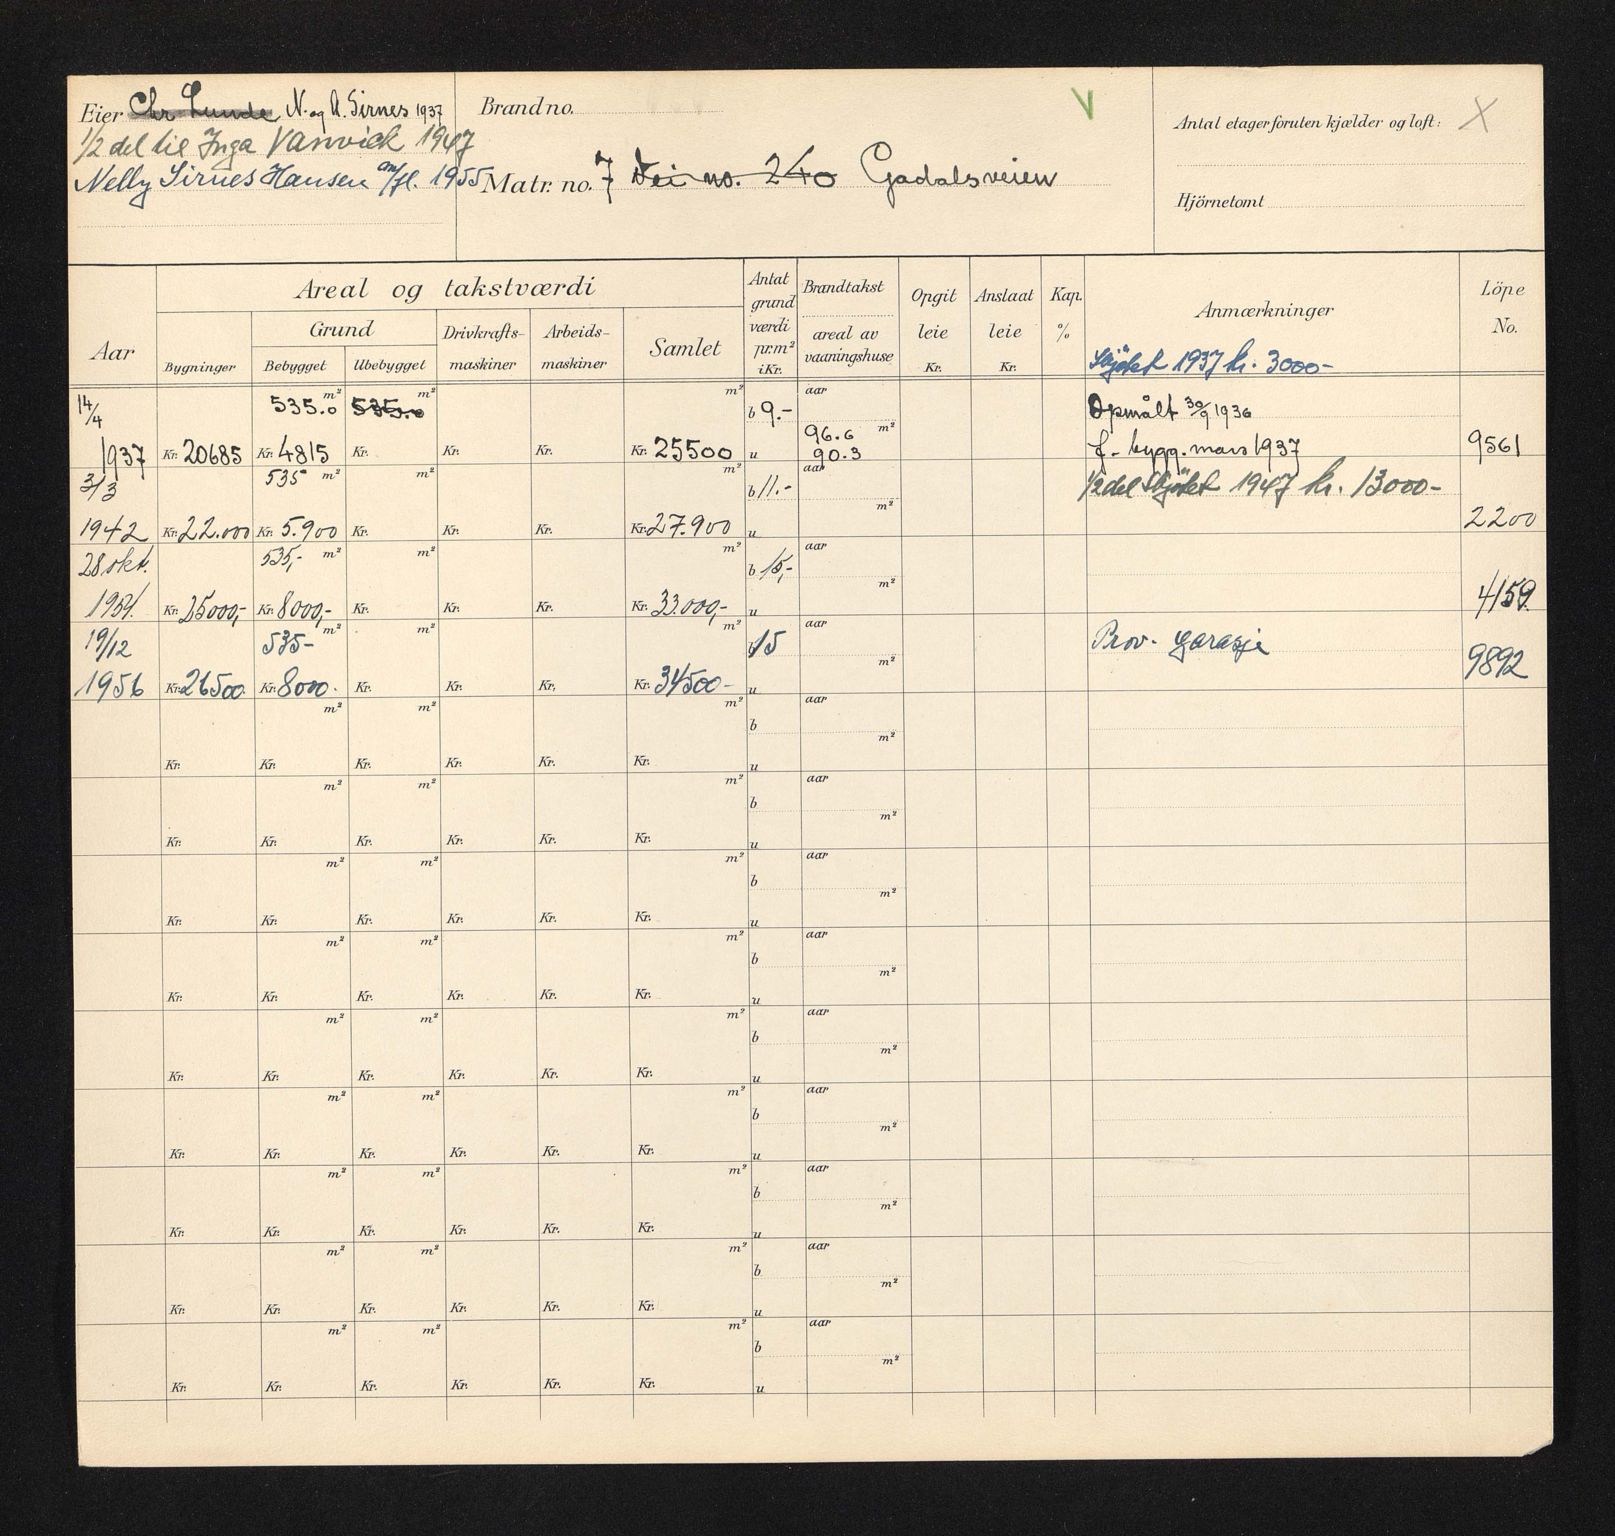 Eier Chr. Lunde N. og A. Sirnes 1937
1/2 del til Inga Vanvick 1947
Nelly Sirnes Hansen m/fl. 1955
Brand no.
Matr. no. 7 Vei no. 240 Gadalsveien
V
Antal etager foruten kjælder og loft: X
Hjörnetomt
Aar
Areal og takstværdi
Bygninger
Grund
Bebygget
Ubebygget
Drivkrafts-
maskiner
Arbeids-
maskiner
Samlet
Antat
grund
værdi
pr.m²
i Kr.
Brandtakst
areal av
vaaningshuse
Opgit
leie
Kr.
Anslaat
leie
Kr.
Kap.
%
Anmærkninger
Skjötet 1937 kr. 3000-
Löpe
No.
14/4 535.0 m² 535.0 m² m² b 9.- aar Opmålt 30/9 1936
96.6 m²
1937 Kr. 20685 Kr. 4815 Kr. Kr. Kr. Kr. 25500 u 90.3 f. bygg. mars 1937 9561
3/3 535 m² m² m² b 11.- aar 1/2 del Skjötet 1947 kr. 13000-
m²
1942 Kr. 22.000 Kr. 5.900 Kr. Kr. Kr. Kr. 27.900 u 2200
28 okt. 535,- m² m² m² b 15,- aar
m²
1954. Kr. 25000,- Kr. 8000,- Kr. Kr. Kr. Kr. 33.000,- u 4159.
19/12 535- m² m² m² b 15 aar Prov. garasje
m²
1956 Kr. 26500. Kr. 8000.- Kr. Kr. Kr. Kr. 34500- u 9892
m² m² m² b aar
m²
Kr. Kr. Kr. Kr. Kr. Kr. u
m² m² m² b aar
m²
Kr. Kr. Kr. Kr. Kr. Kr. u
m² m² m² b aar
m²
Kr. Kr. Kr. Kr. Kr. Kr. u
m² m² m² b aar
m²
Kr. Kr. Kr. Kr. Kr. Kr. u
m² m² m² b aar
m²
Kr. Kr. Kr. Kr. Kr. Kr. u
m² m² m² b aar
m²
Kr. Kr. Kr. Kr. Kr. Kr. u
m² m² m² b aar
m²
Kr. Kr. Kr. Kr. Kr. Kr. u
m² m² m² b aar
m²
Kr. Kr. Kr. Kr. Kr. Kr. u
m² m² m² b aar
m²
Kr. Kr. Kr. Kr. Kr. Kr. u